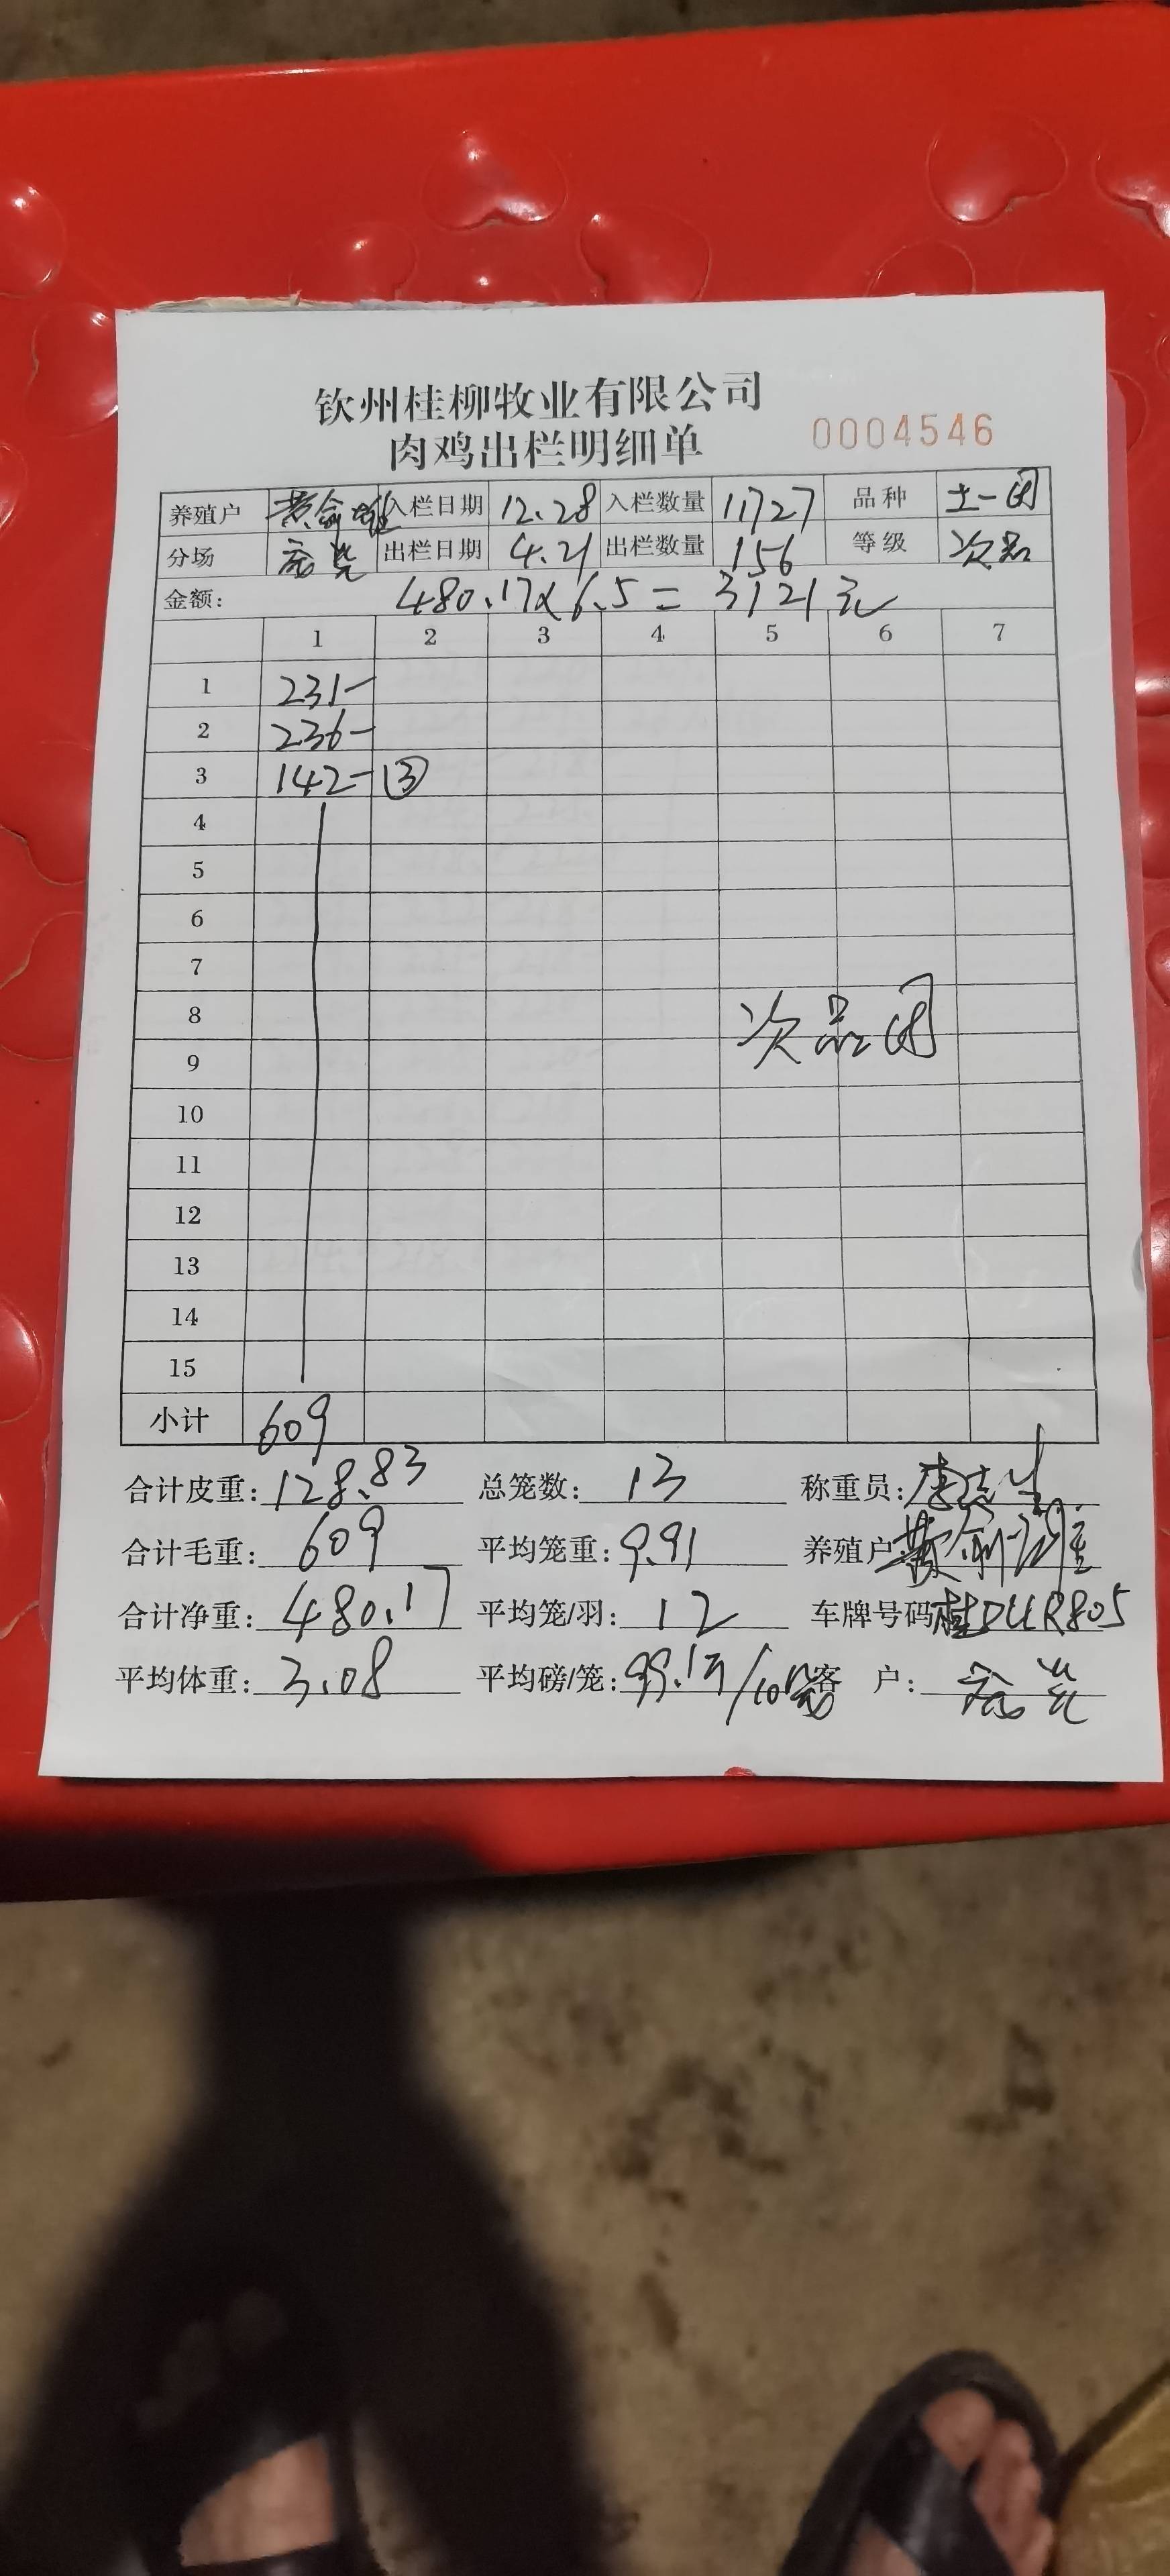 钦州桂柳牧业有限公司
肉鸡出栏明细单 0004546
养殖户 黄 入栏日期 12.28 入栏数量 11727 品种 土一
分场 出栏日期 4.21 出栏数量 156 等级 次品
金额: 480.17×6.5=3121元
1 2 3 4 5 6 7
1 231-
2 236-
3 142-③
4
5
6
7
8 次品
9
10
11
12
13
14
15
小计 609
合计皮重: 128.83 总笼数: 13 称重员: 李
合计毛重: 609 平均笼重: 9.91 养殖户
合计净重: 480.17 平均笼/羽: 12 车牌号码 桂DUR805
平均体重: 3.08 平均磅/笼: 99.1 /10 客 户: